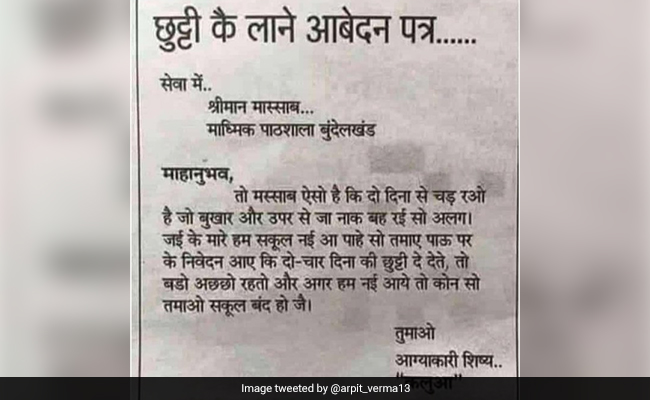 छुट्टी कै लाने आबेदन पत्र......
सेवा में..
श्रीमान मास्साब...
माध्मिक पाठशाला बुंदेलखंड
माहानुभव,
तो मस्साब ऐसो है कि दो दिना से चड़ रओ
है जो बुखार और उपर से जा नाक बह रई सो अलग।
जई के मारे हम सकूल नई आ पाहे सो तमाए पाऊ पर
के निवेदन आए कि दो-चार दिना की छुट्टी दे देते, तो
बडो अछछो रहतो और अगर हम नई आये तो कोन सो
तमाओ सकूल बंद हो जै।
तुमाओ
आग्याकारी शिष्य..
"कलुआ"
Image tweeted by @arpit_verma13